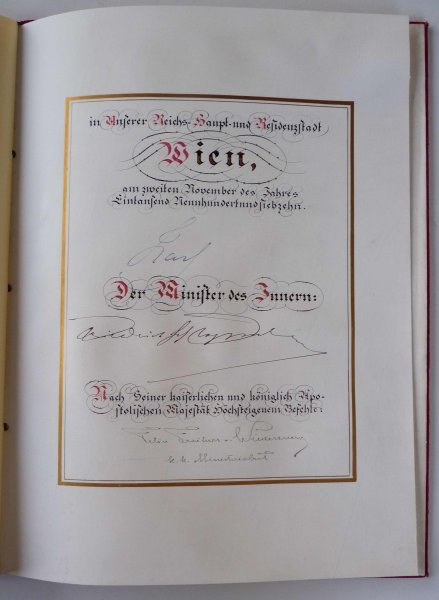 in Unserer Reichs-Haupt-und Residenzstadt
Wien,
am zweiten November des Jahres
Eintausend Neunhundertundsiebzehn.
Karl
Der Minister des Innern:
Nach Seiner kaiserlichen und königlich Apo-
stolischen Majestät Höchsteigenem Befehle:
k. k.